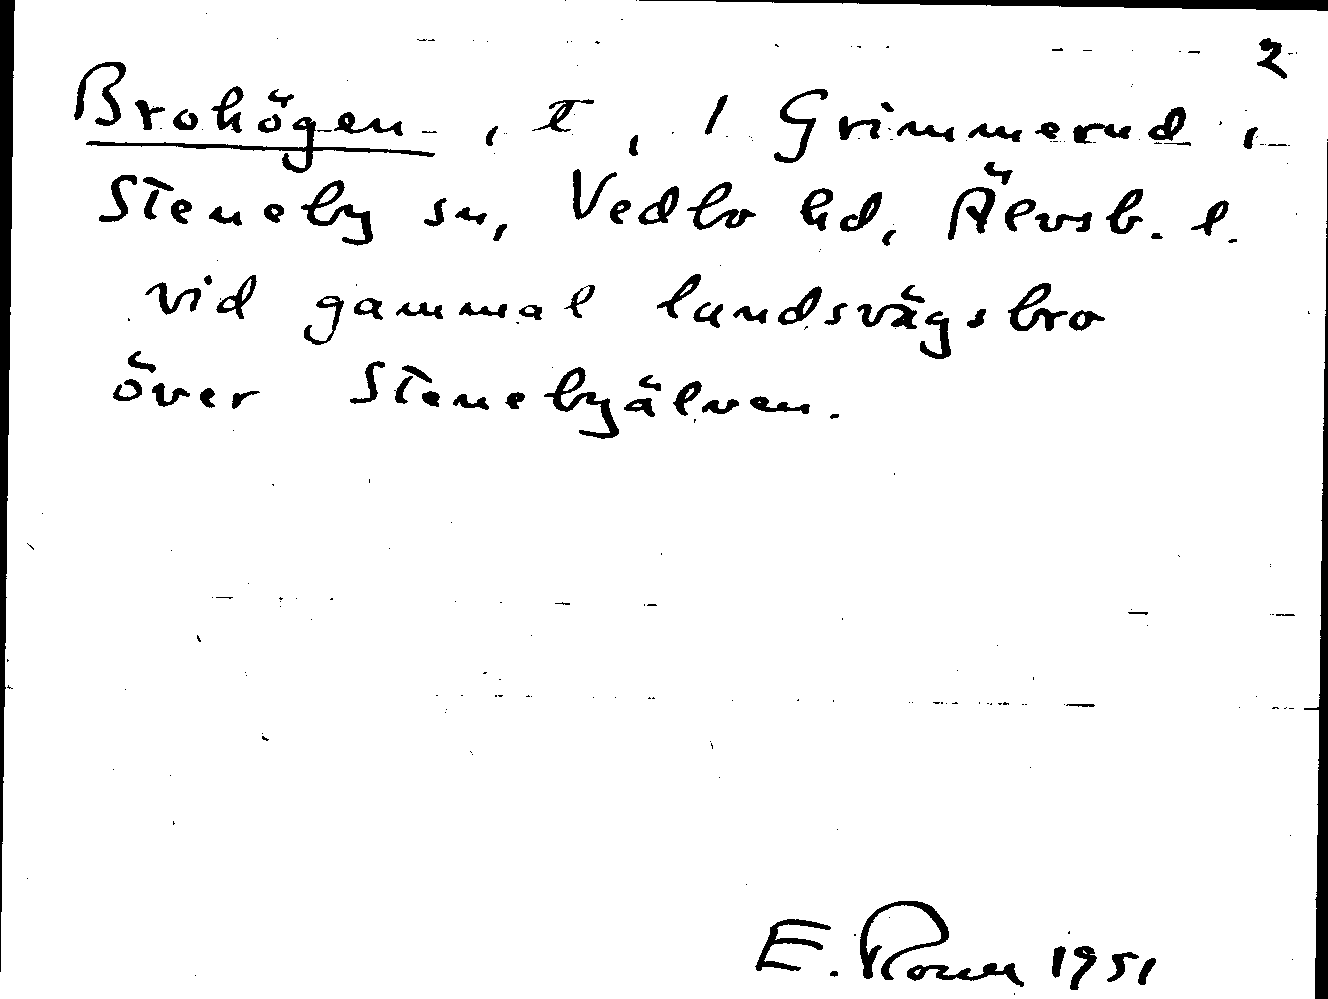 2
Brohögen, t, 1 Grimmerud,
Steneby sn, Vedbo hd, Älvsb. l.
vid gammal landsvägsbro
över Stenebyälven.
E. 1951